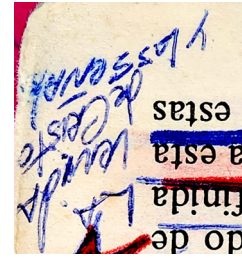 do de
finida
a esta
estas
La
venida
de Cristo
y las